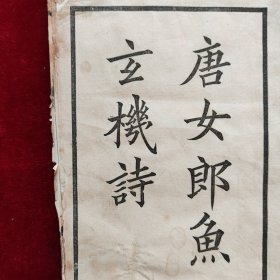 唐女郎魚
玄機詩